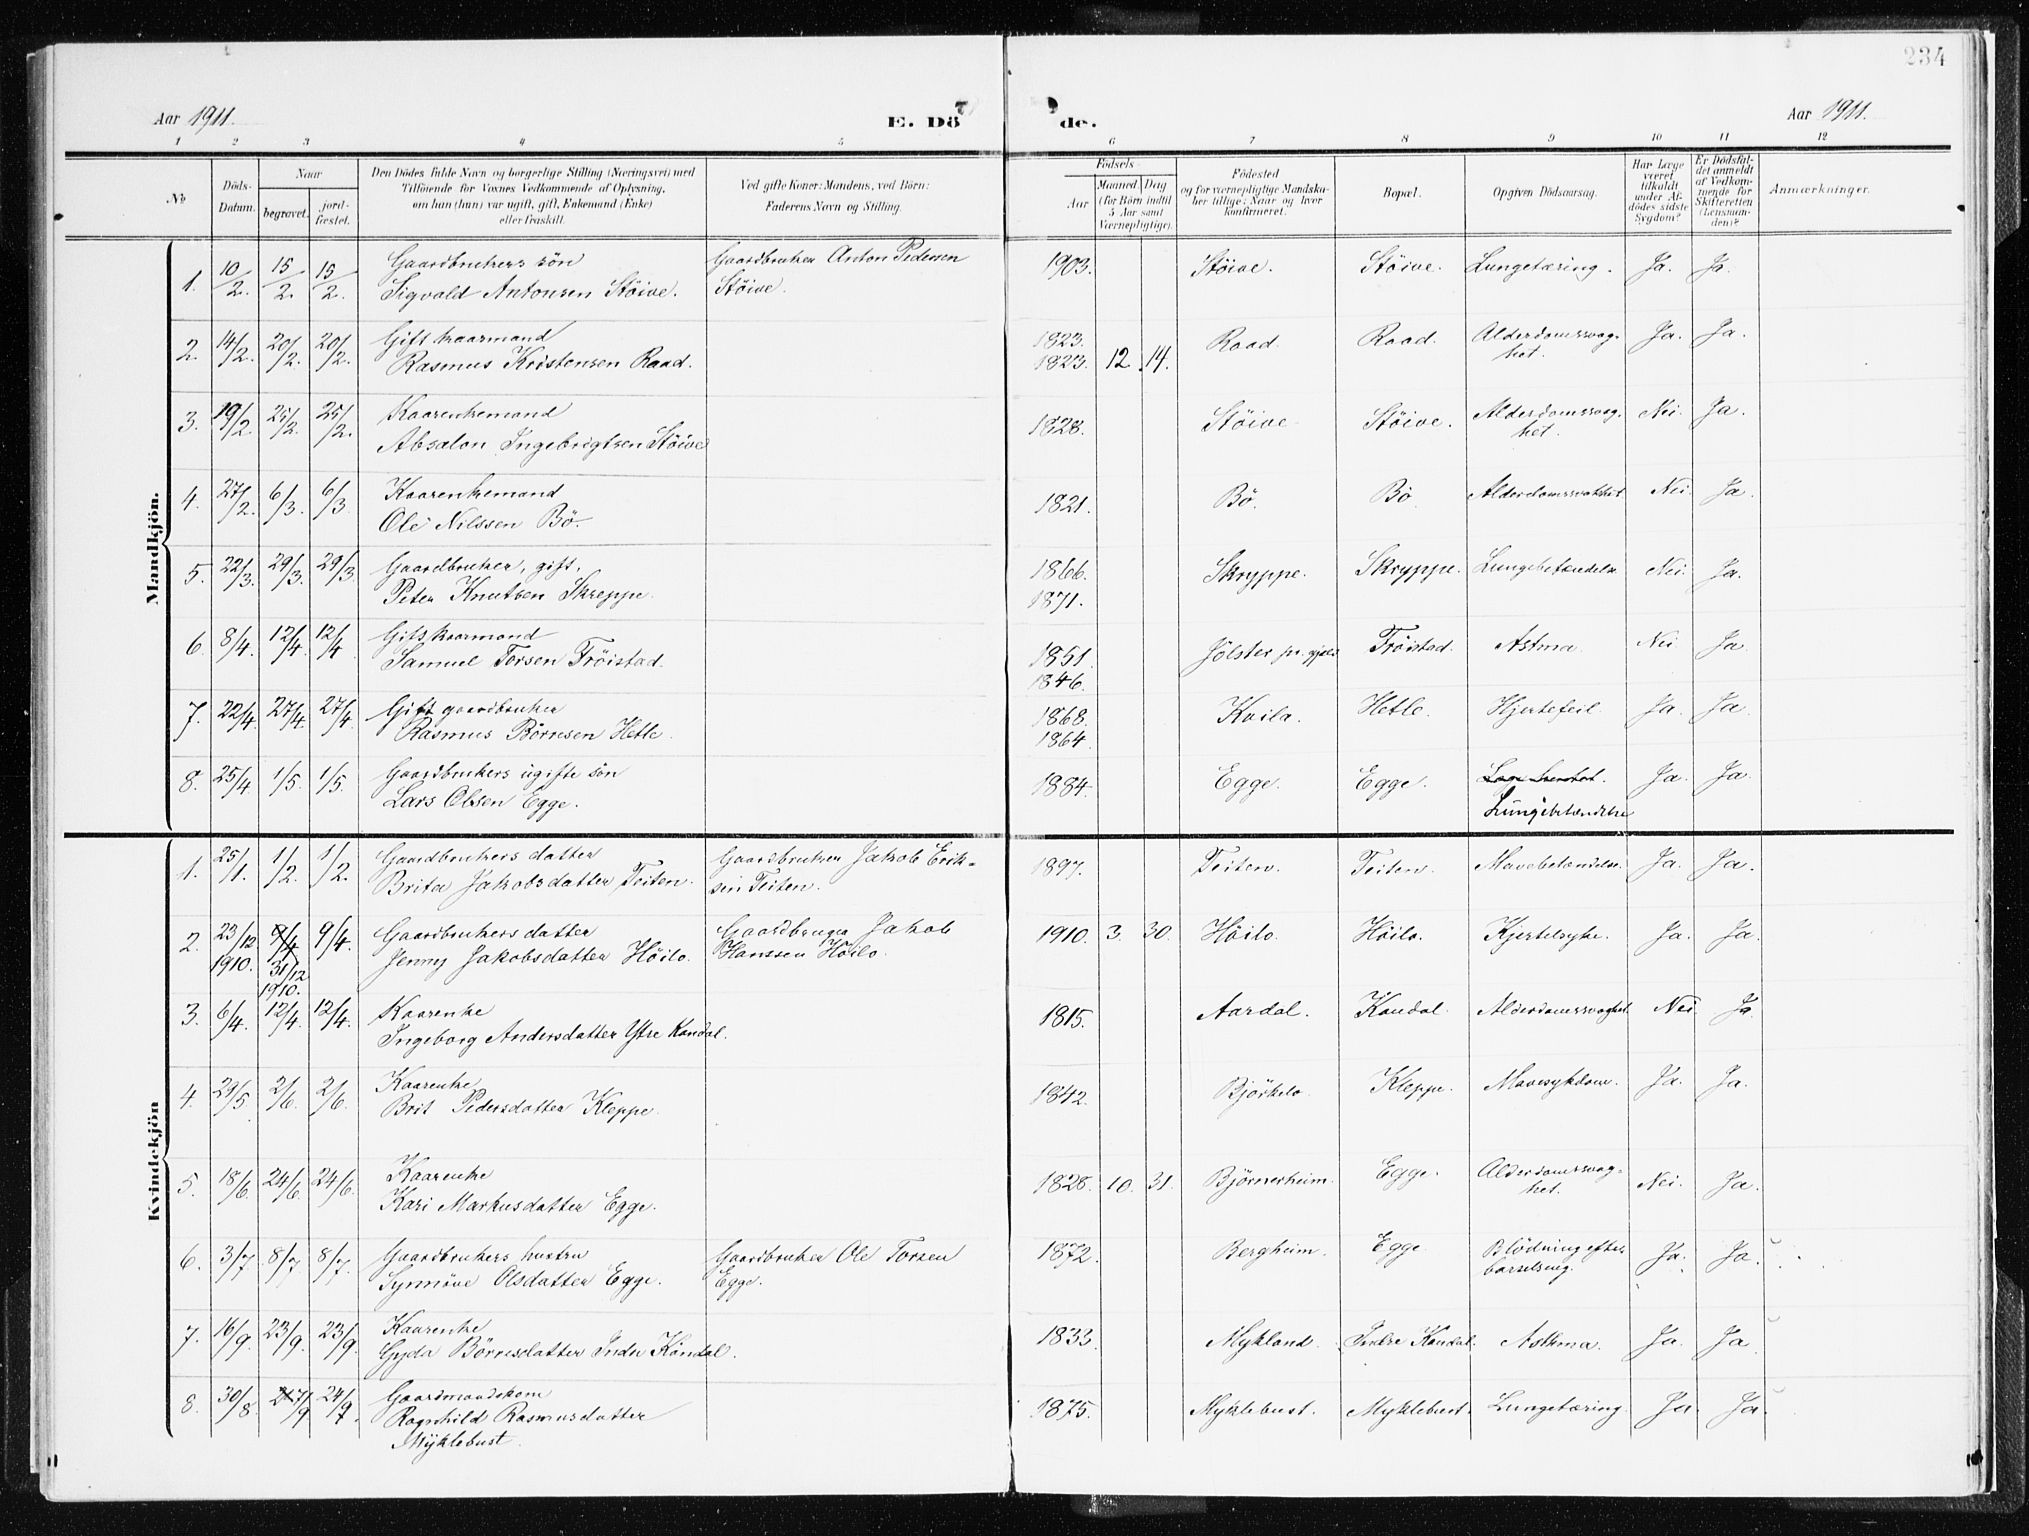 234
Aar 1911. E. Döde. Aar 1911.
1 2 3 4 5 6 7 8 9 10 11 12
No
Döds-Datum.
Naar
begravet.
jord-fæstet.
Den Dödes fulde Navn og borgerlige Stilling (Næringsvei) med
Tilföiende for Voxnes Vedkommende af Oplysning,
om han (hun) var ugift, gift, Enkemand (Enke)
eller fraskilt.
Ved gifte Koner: Mandens, ved Börn:
Faderens Navn og Stilling.
Födsels-
Aar
Maaned Dag
(for Börn indtil
5 Aar samt
Værnepligtige).
Födested
og for værnepligtige Mandska-
ber tillige: Naar og hvor
konfirmeret.
Bopæl.
Opgiven Dödsaarsag.
Har Læge
været
tilkaldt
under Af-
dödes sidste
Sygdom?
Er Dödsfal-
det anmeldt
af Vedkom-
mende for
Skifteretten
(Lensman-
den)?
Anmærkninger.
Mandkjön.
1. 10/2. 15/2. 15/2. Gaardbrukers sön Gaardbruker Anton Pedersen 1903. Stöive. Stöive. Lungetæring. Ja. Ja.
Sigvald Antonsen Stöive. Stöive.
2. 14/2. 20/2. 20/2. Gift kaarmand 1823. Raad. Raad. Alderdomssvag- Ja. Ja.
Rasmus Kristensen Raad. 1823. 12. 14. het.
3. 19/2. 25/2. 25/2. Kaarenkemand 1828. Stöive. Stöive. Alderdomssvag- Nei. Ja.
Absalon Ingebrigtsen Stöive het.
4. 27/2. 6/3. 6/3. Kaarenkemand 1821. Bö. Bö. Alderdomssvakhet. Nei. Ja.
Ole Nilssen Bö.
5. 22/3. 29/3. 29/3. Gaardbruker, gift, 1866. Skryppe. Skryppe. Lungebetændelse. Nei. Ja.
Peter Knutsen Skreppe. 1871.
6. 8/4. 12/4. 12/4. Gift kaarmand 1851. Jölster pr. gjæld Tröistad. Astma. Nei. Ja.
Samuel Torsen Tröistad. 1846.
7. 22/4. 27/4. 27/4. Gift gaardbruker 1868. Kvila. Hetle. Hjertefeil. Ja. Ja.
Rasmus Börresen Hetle. 1864.
8. 25/4. 1/5. 1/5. Gaardbrukers ugifte sön 1884. Egge. Egge. Ja. Ja.
Lars Olsen Egge. Lungebetændelse
Kvindekjön
1. 25/1. 1/2. 1/2. Gaardbrukers datter Gaardbruker Jakob Erik- 1897. Teiten. Teiten. Mavebetændelse. Ja. Ja.
Brita Jakobsdatter Teiten. sen Teiten.
2. 23/12 1910. 9/4 31/12 1910. 9/4. Gaardbrukers datter Gaardbruger Jakob 1910. 3. 30. Höilo. Höilo. Kjertelsyke. Ja. Ja.
Jenny Jakobsdatter Höilo. Hanssen Höilo.
3. 6/4. 12/4. 12/4. Kaarenke 1815. Aardal. Kandal. Alderdomssvaghet. Nei. Ja.
Ingeborg Andersdatter Ytre Kandal.
4. 29/5. 2/6. 2/6. Kaarenke 1842. Bjørkelo. Kleppe. Mavesykdom. Ja. Ja.
Brit Pedersdatter Kleppe.
5. 18/6. 24/6. 24/6. Kaarenke 1828. 10. 31. Björnerheim. Egge. Alderdomssvag- Nei. Ja.
Kari Markusdatter Egge. het.
6. 3/7. 8/7. 8/7. Gaardbrukers hustru Gaardbruker Ole Torsen 1872. Bergheim. Egge. Blödning efter Ja. Ja.
Synnöve Olsdatter Egge. Egge. barselseng.
7. 16/9. 23/9. 23/9. Kaarenke 1833. Mykland. Indre Kandal. Asthma. Ja. Ja.
Gyda Börresdatter Indre Kandal.
8. 30/8. 7/9 24/9. Gaardmandskone 1875. Myklebust. Myklebust. Lungetæring. Ja. Ja.
Ragnhild Rasmusdatter
Myklebust.